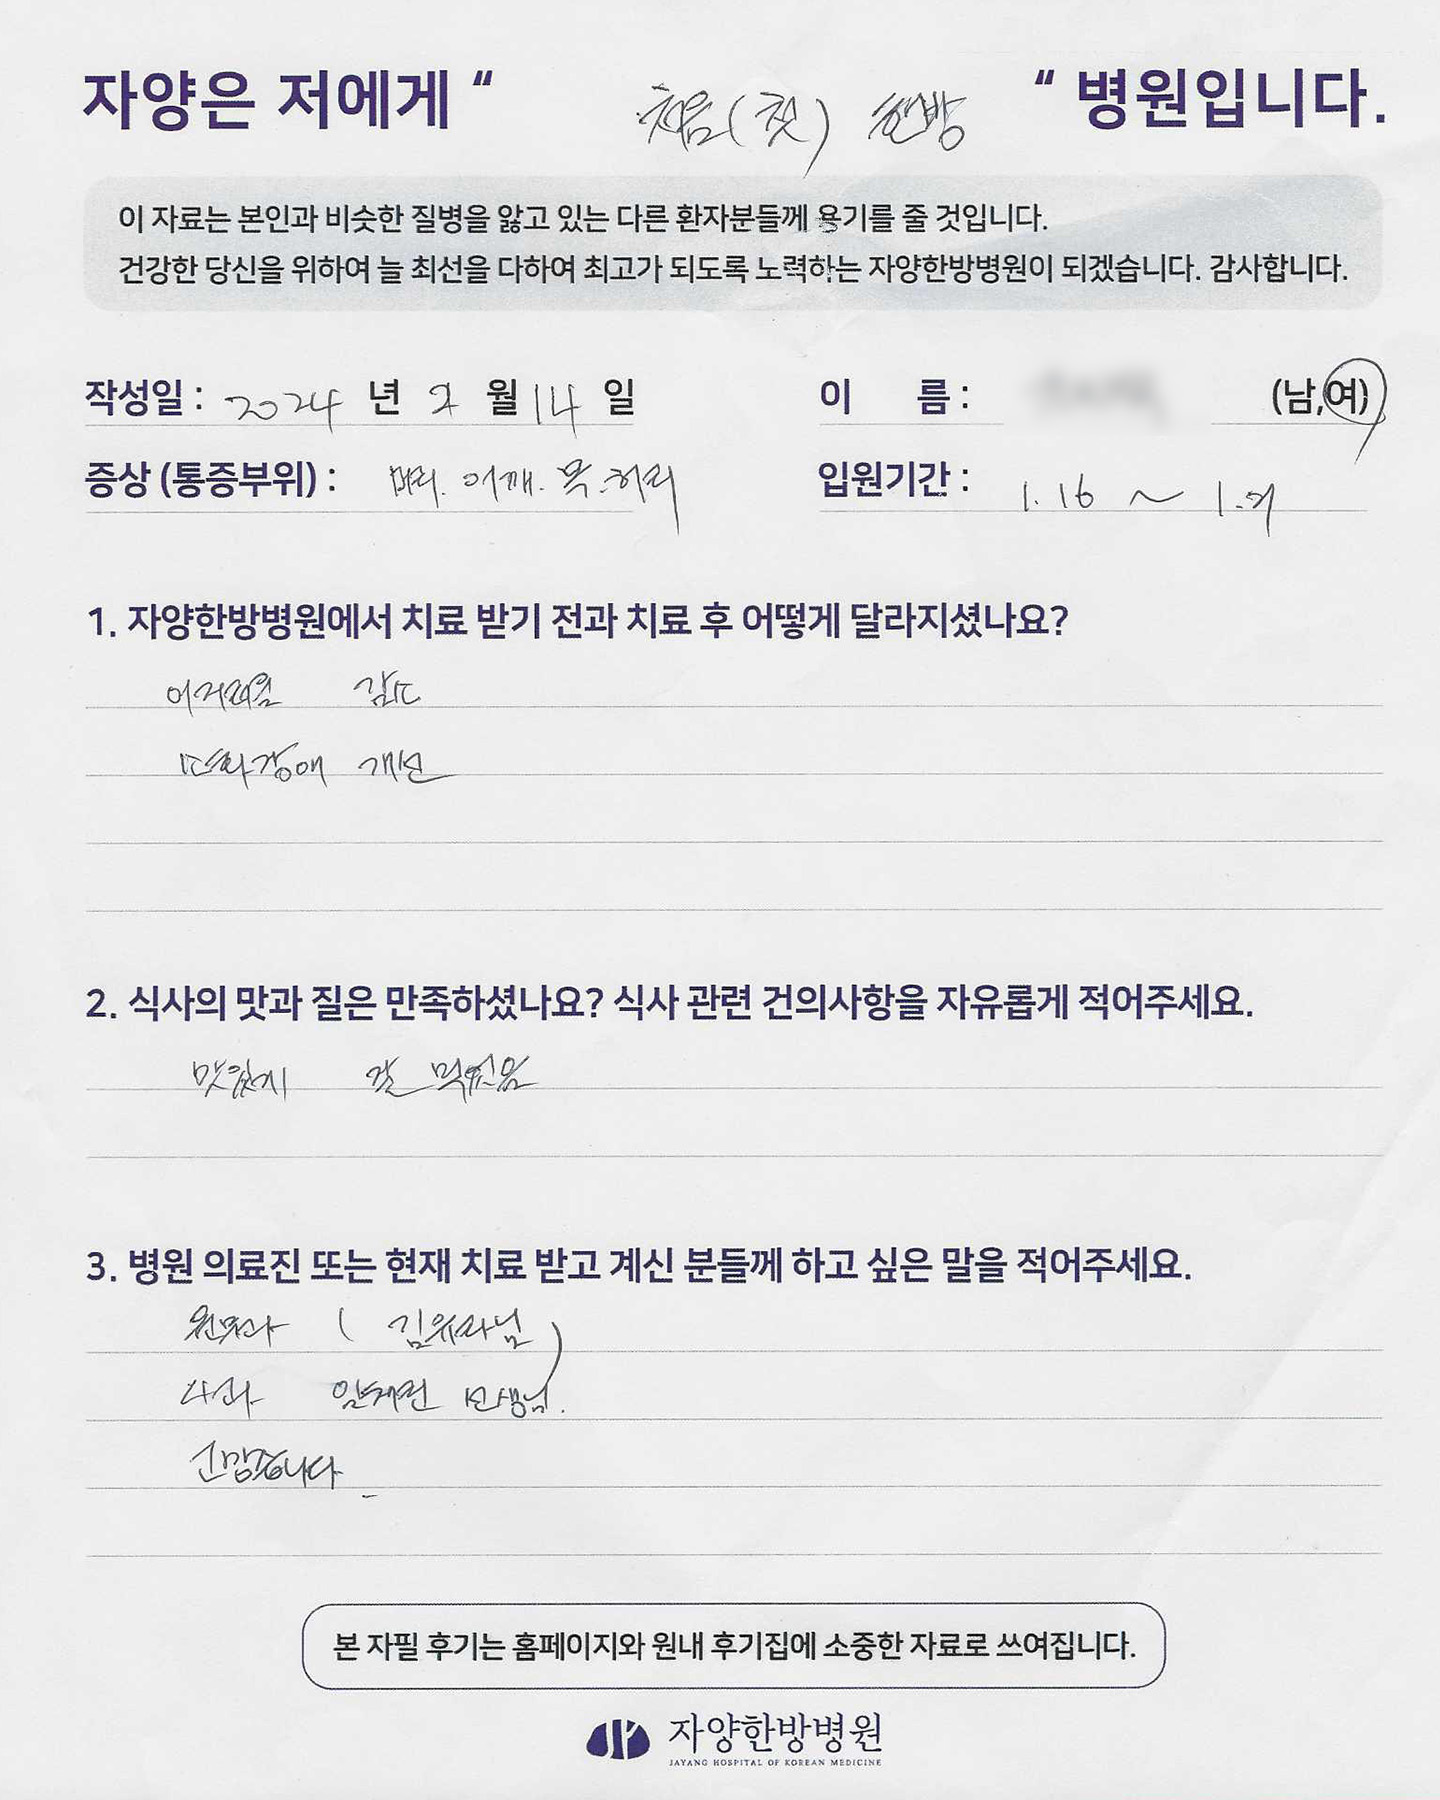 자양은 저에게 “ 처음(첫) 한방 “ 병원입니다.
이 자료는 본인과 비슷한 질병을 앓고 있는 다른 환자분들께 용기를 줄 것입니다.
건강한 당신을 위하여 늘 최선을 다하여 최고가 되도록 노력하는 자양한방병원이 되겠습니다. 감사합니다.
작성일 : 2024 년 2 월 14 일 이 름 : (남,여)
증상 (통증부위) : 머리. 어깨. 목. 허리 입원기간 : 1. 16 ~ 1.
1. 자양한방병원에서 치료 받기 전과 치료 후 어떻게 달라지셨나요?
어지러움 감소
소화장애 개선
2. 식사의 맛과 질은 만족하셨나요? 식사 관련 건의사항을 자유롭게 적어주세요.
맛있게 잘 먹었음
3. 병원 의료진 또는 현재 치료 받고 계신 분들께 하고 싶은 말을 적어주세요.
원무과 ( 김유라님 )
선생님.
고맙습니다
본 자필 후기는 홈페이지와 원내 후기집에 소중한 자료로 쓰여집니다.
자양한방병원
JAYANG HOSPITAL OF KOREAN MEDICINE